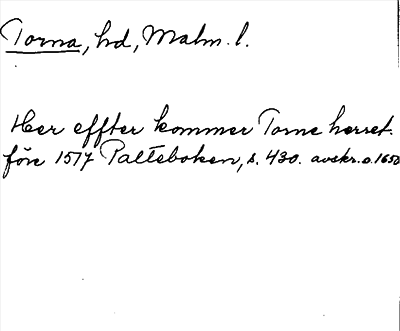 Torna, hd, Malm. l.
Her effter kommer Torne herret.
före 1517 Palteboken, s. 430. avskr. o. 1650